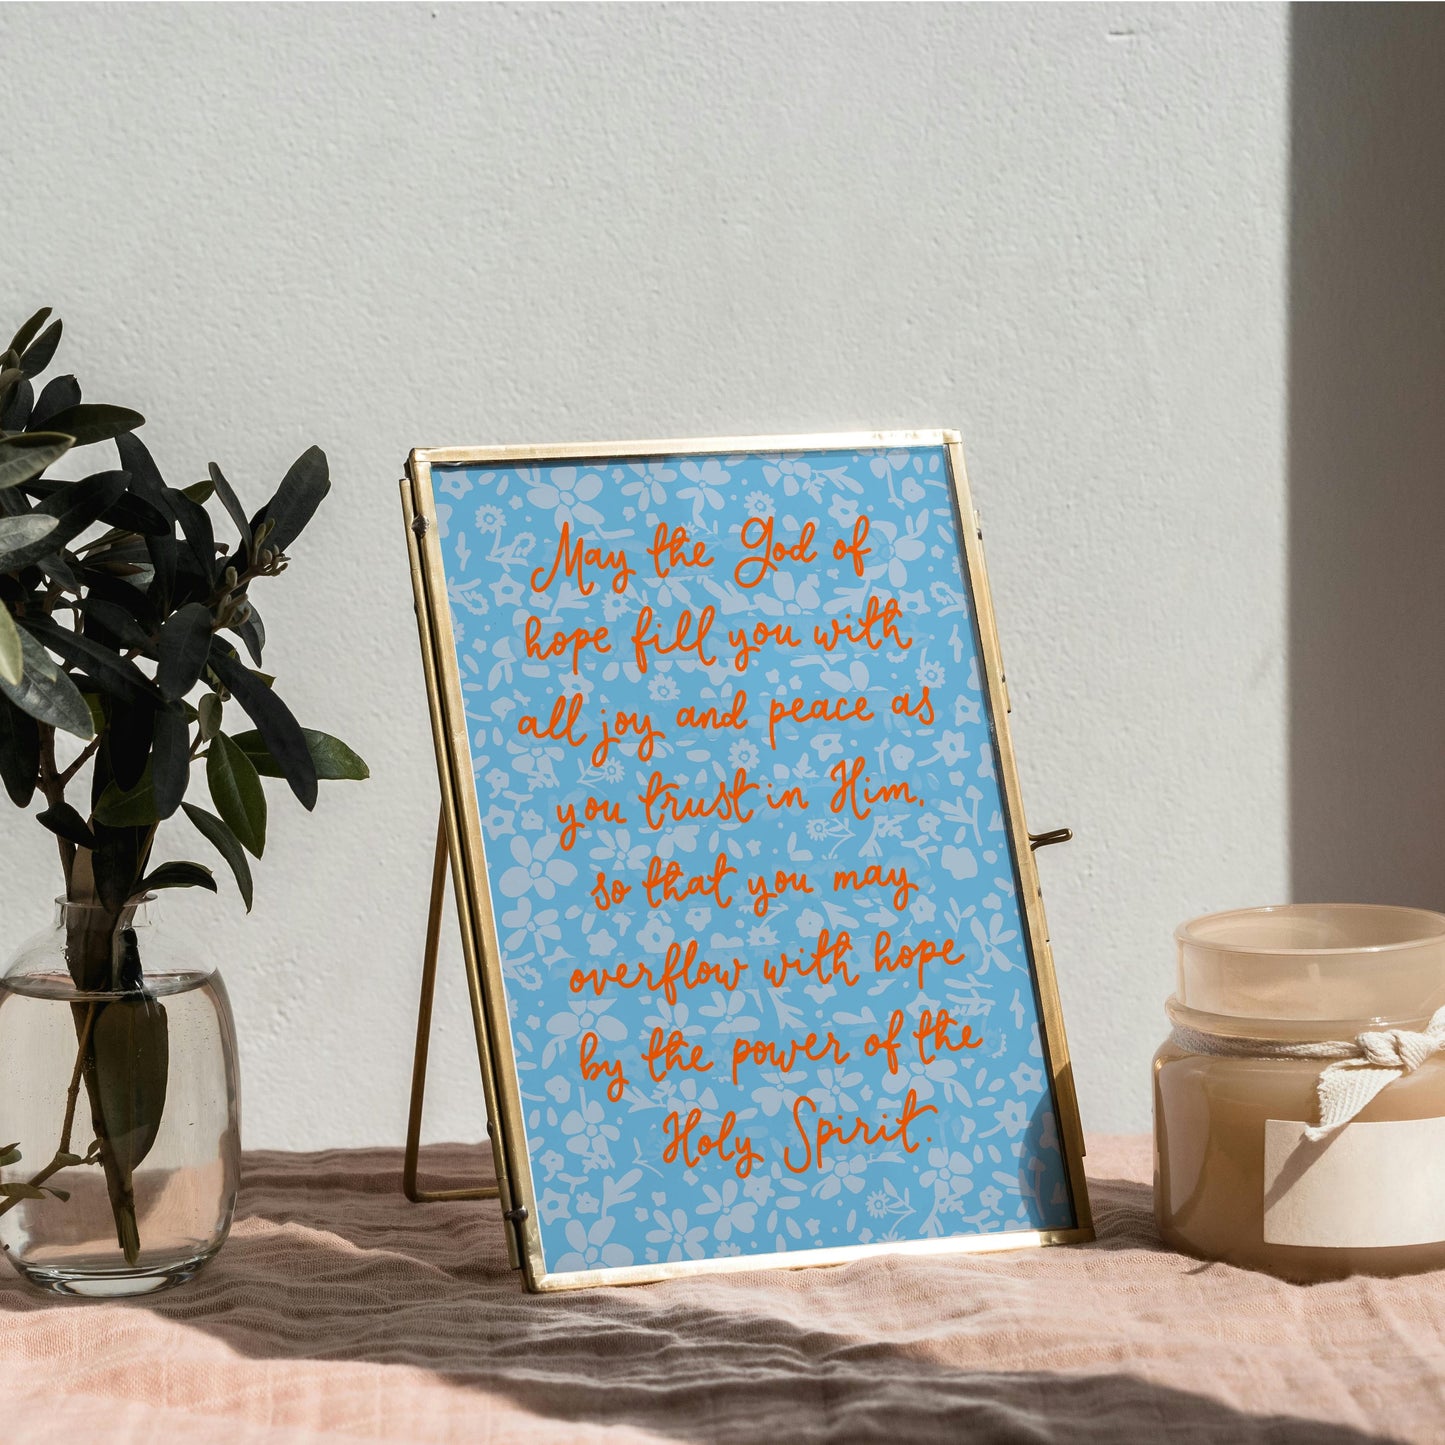 May the God of
hope fill you with
all joy and peace as
you trust in Him,
so that you may
overflow with hope
by the power of the
Holy Spirit.